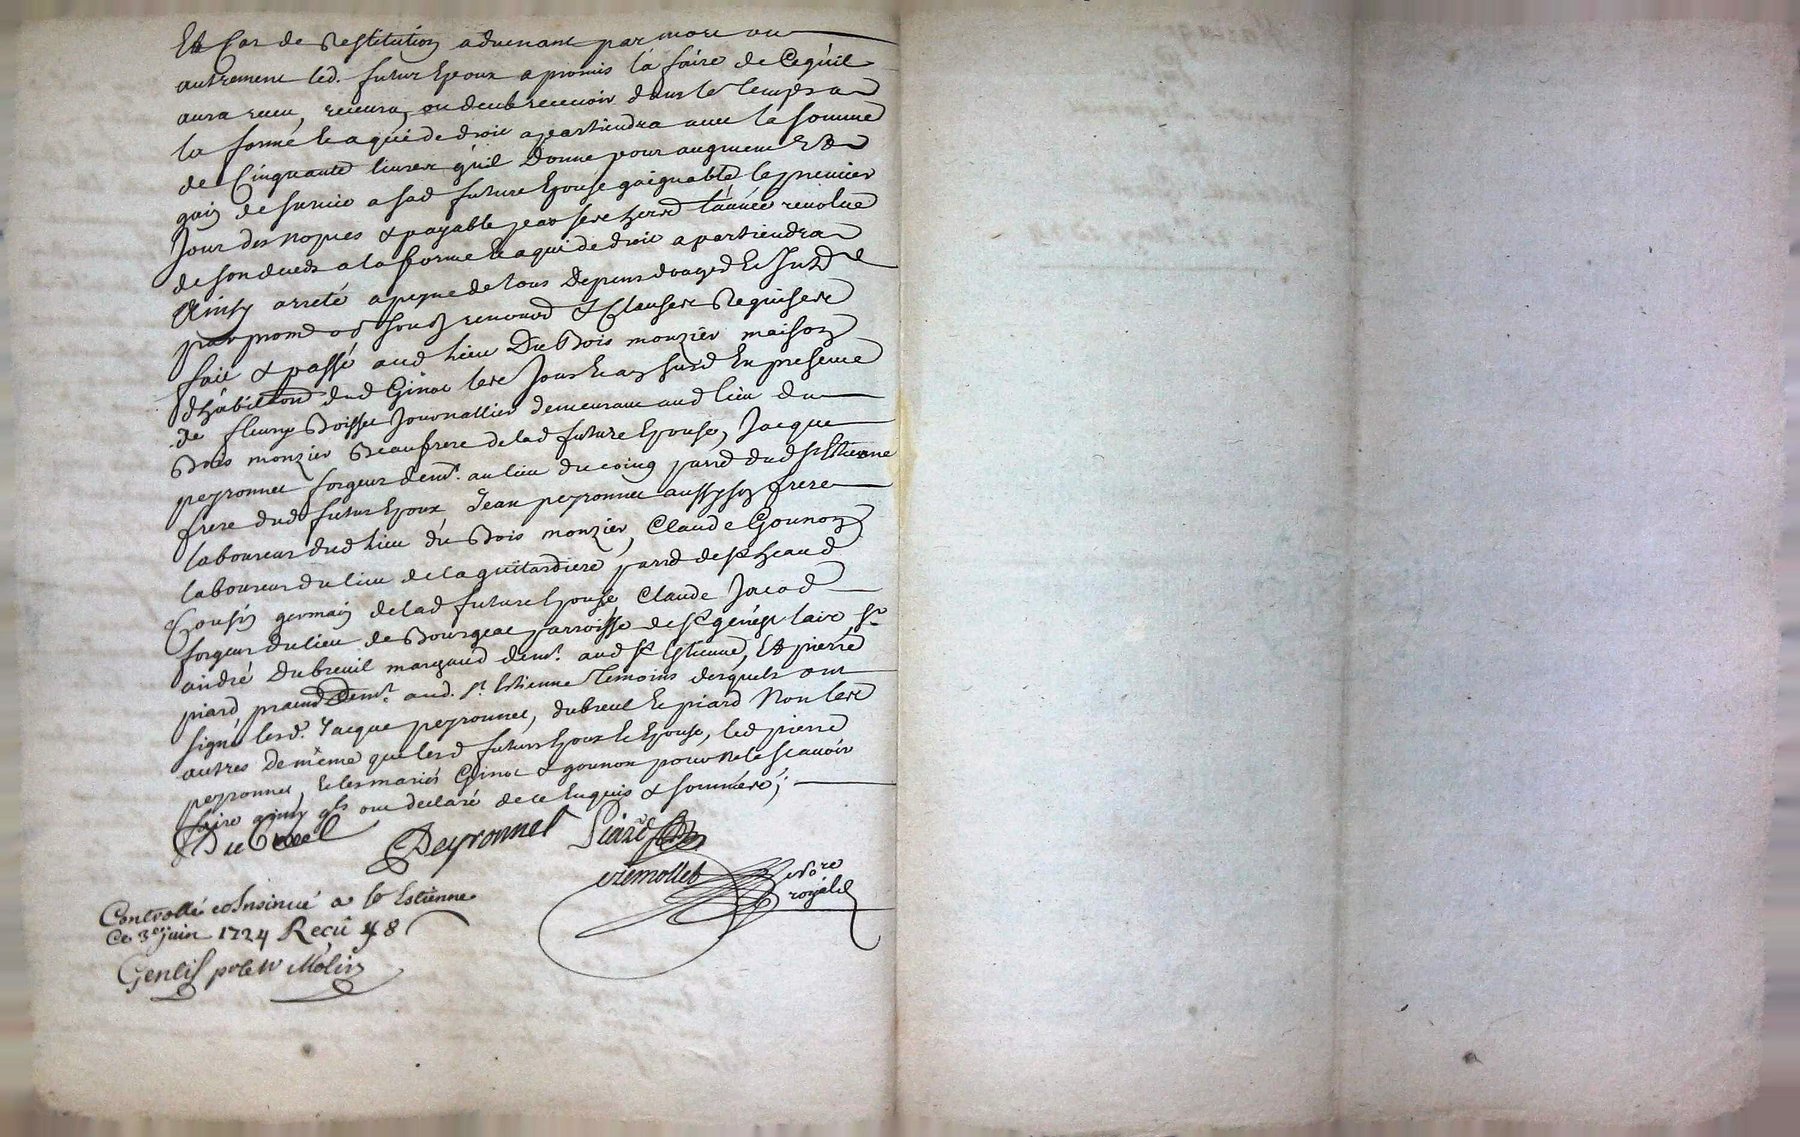 Et Cas de Restitution advenant par mort ou
autrement led. futur Epoux a promis la faire de Cequil
aura receu, recevra, ou deub recevoir dans le temps a
la forme & a qui de droit apartiendra avec la somme
de Cinquante livres qu'il Donne pour augment Et
gain de survie a sad future Epouse gaignable le premier
Jour des nopces & payable par ses hers l'année revolue
de son deceds a la forme & a qui de droit apartiendra
Ainsy arreté a peyne de tous Depens domages & Intd
par prom obd soubz renond & Clauses Requises
fait & passé aud lieu Du Bois monzier maison
d'habitaon dud Ginot les Jour & an susd En presence
de fleury Boisse Journallier demeurant aud lieu du
Bois monzier Beaufrere delad future Epouse, Jacque
peyronnet forgeur demt. au lieu du coing parrd dud St Estienne
frere dud futur Epoux Jean peyronnet aussy son frere
laboureur dud lieu du Bois monzier, Claude Gounon
laboureur du lieu de la guitardiere parrd de St heand
Cousin germain delad future Epouse Claude Jacod
forgeur du lieu de Bourgeat parroisse de St genest lair, Sr
andré Dubreuil marchand demt. aud St Estienne, Et pierre
piard pratd demt. aud. St. Estienne Temoins desquels ont
signé lesd. Jacque peyronnet, dubreul & piard Non les
autres De même que lesd futurs Epoux & Epouse, led pierre
peyronnet, & les mariés Ginot & gounon pour ne le scavoir
faire ainsy qls ont declaré de ce Enquis & sommés;
DuBreul Peyronnet Piard
No.re
royal
Controllé & Insinué a St Estienne
Ce 3e juin 1724 Reçû
Gentil pr le Sr Molin